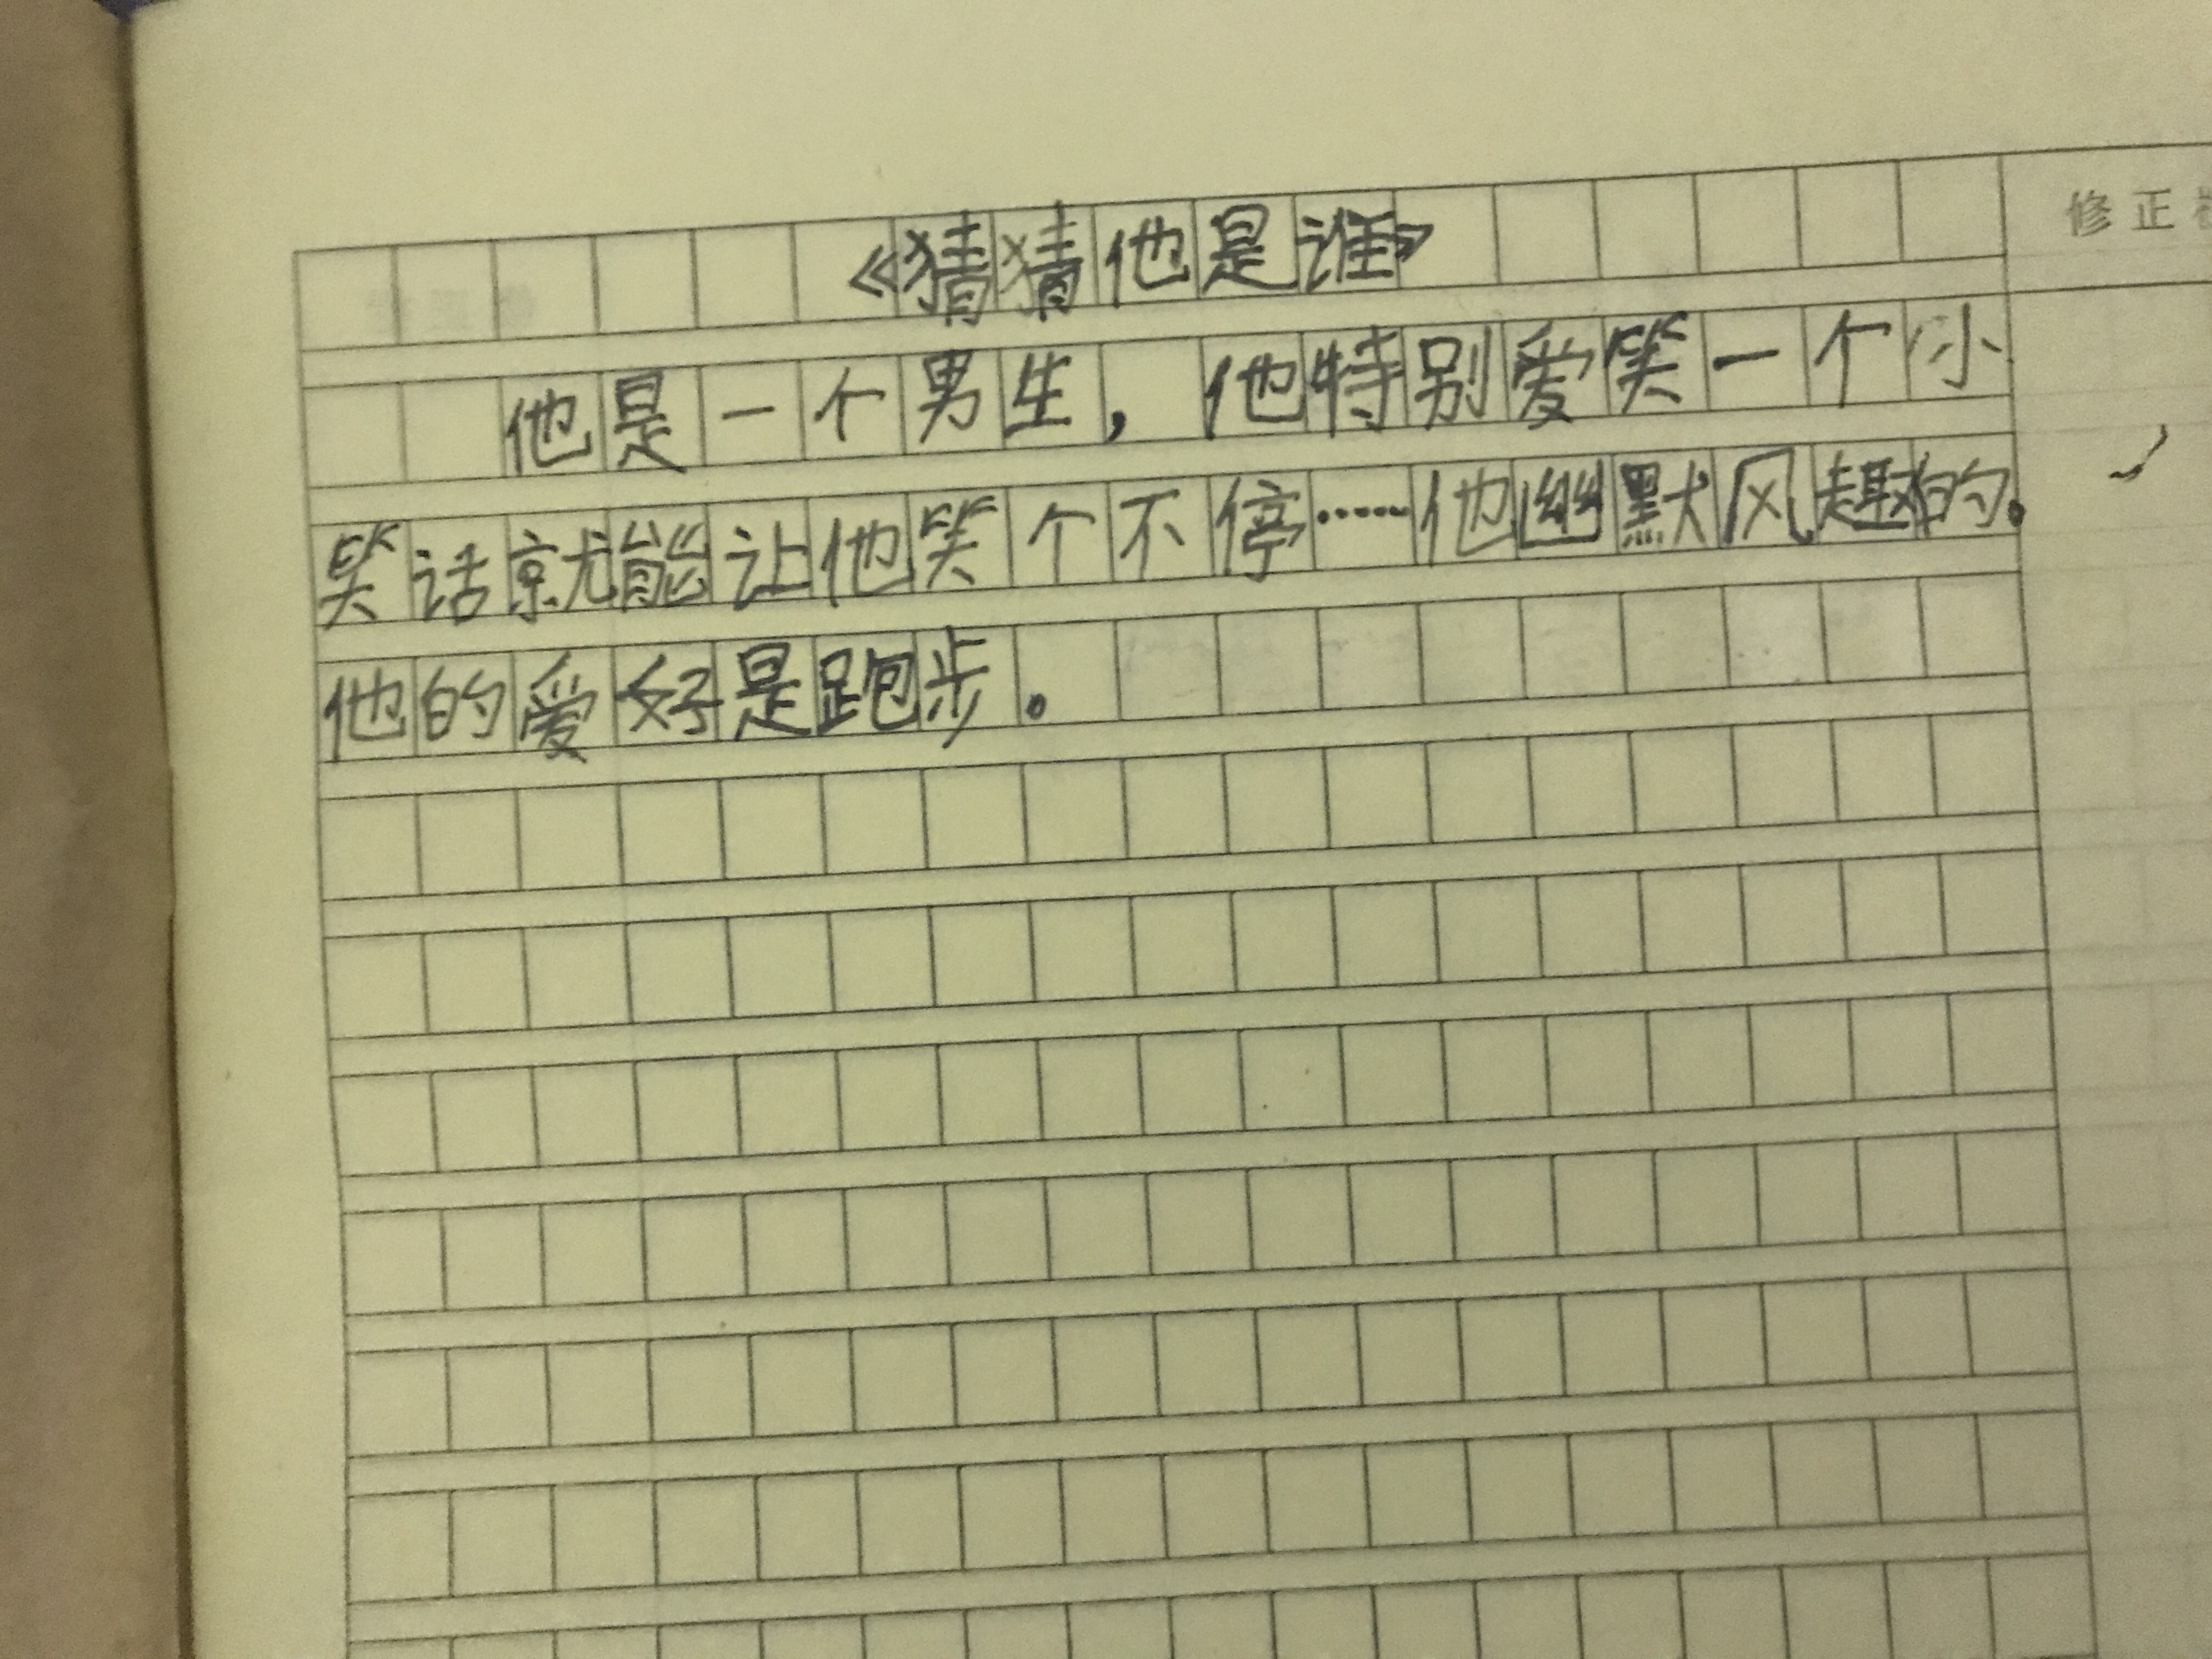 《猜猜他是谁》
修正
他是一个男生，他特别爱笑一个小
笑话就能让他笑个不停……他幽默风趣的。
他的爱好是跑步。